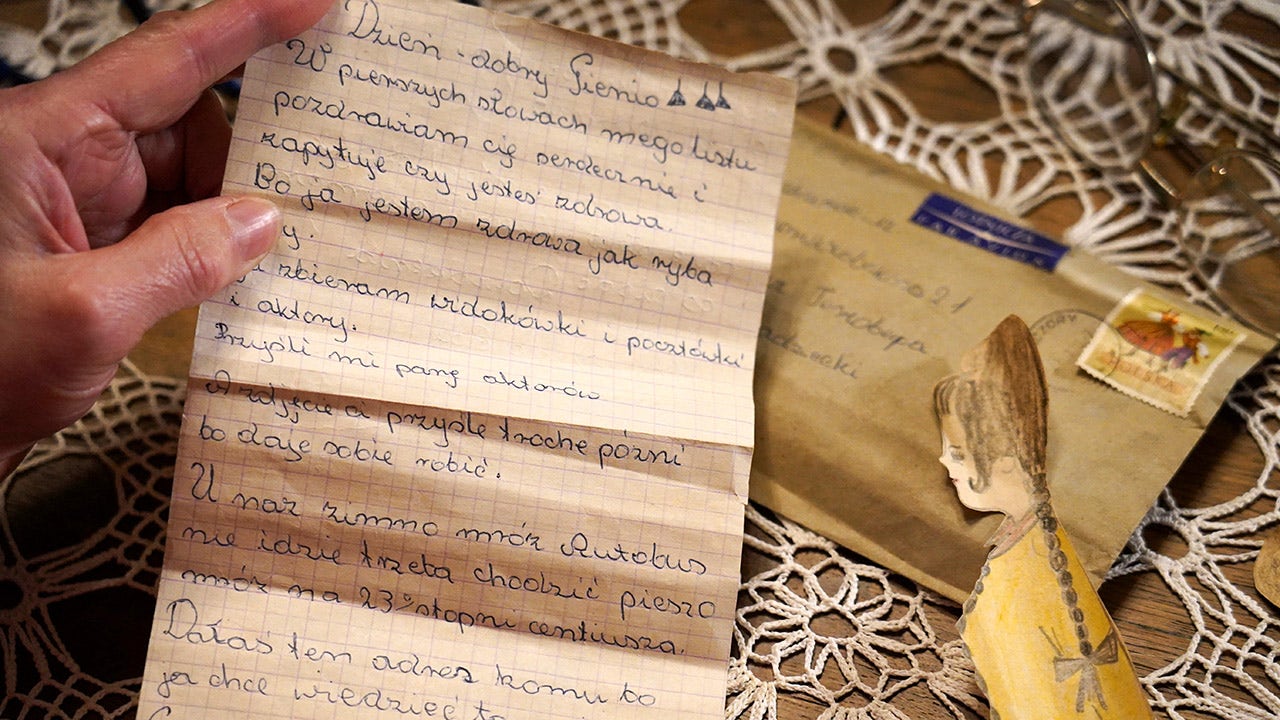 Dzień - dobry Gienio
W pierszych słowach mego listu
pozdrawiam cię serdecznie i
zapytuje czy jesteś zdrowa.
Bo ja jestem zdrowa jak ryba
y.
zbieram widokówki i pocztówki
i aktory.
Przyśli mi parę aktorów
A zdjęcie ci przyśle troche późni
bo daje sobie robić.
U naz zimno mróz Autobus
nie idzie trzeba chodzić pieszo
mróz na 23° stopni centiusza.
Dałaś ten adres komu bo
ja chce wiedzieć
LOTNICZA
PAR AVION
21